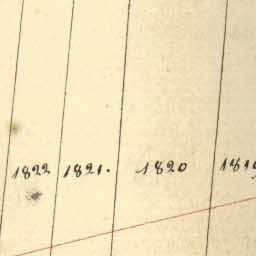 1822 1821. 1820